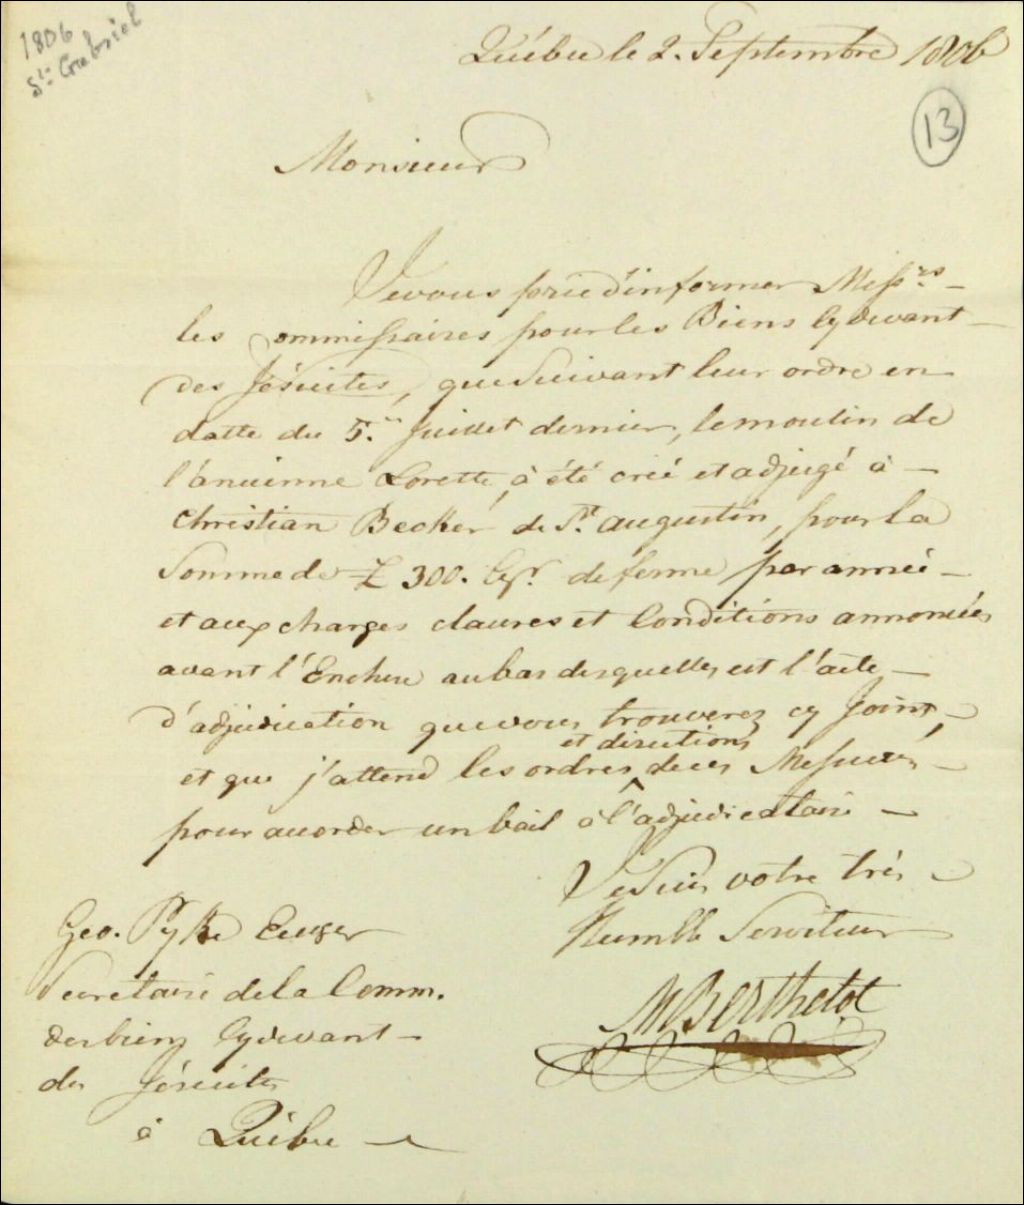 1806
St. Gabriel
Québec le 2. Septembre 1806
13
Monsieur
Je vous prie d'informer Messrs
les Commissaires pour les Biens Cydevant
des Jésuites, que Suivant leur ordre en
datte du 5. Juillet dernier, le moulin de
l'ancienne Lorette, à été crié et adjugé à
Christian Becker de St. augustin, pour la
Somme de £ 300. de ferme par année
et aux charges clauses et Conditions annoncées
avant l'Enchere au bas desquelles est l'acte
d'adjudication que vous trouverez cy Joint,
et que j'attend les ordres et directions de ces Messieurs
pour accorder un bail à l'adjudicataire
Je Suis votre très
Humble Serviteur
M Berthelot
Geo. Pyke
Secretaire de la Comm.
des biens Cydevant
des Jésuites
à Québec